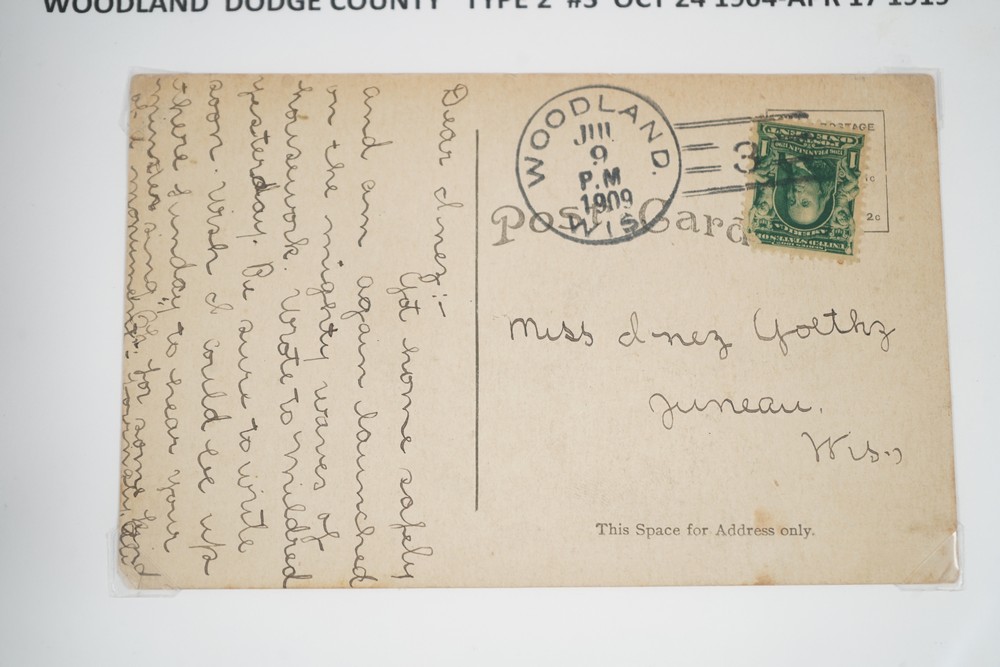 WOODLAND DODGE COUNTY TYPE 2 #3 OCT 24 1904-APR 17 1919
Dear Inez:-
Got home safely
and am again launched
on the mighty waves of
housework. Wrote to Mildred
yesterday. Be sure to write
soon. Wish I could be up
there Sunday to hear your
sing
for some
WOODLAND.
JUL
9
P.M
1909
WIS
POSTAGE
2c
Post Card
UNITED STATES OF AMERICA
1 1
Miss Inez Goethz
Juneau,
Wis.
This Space for Address only.